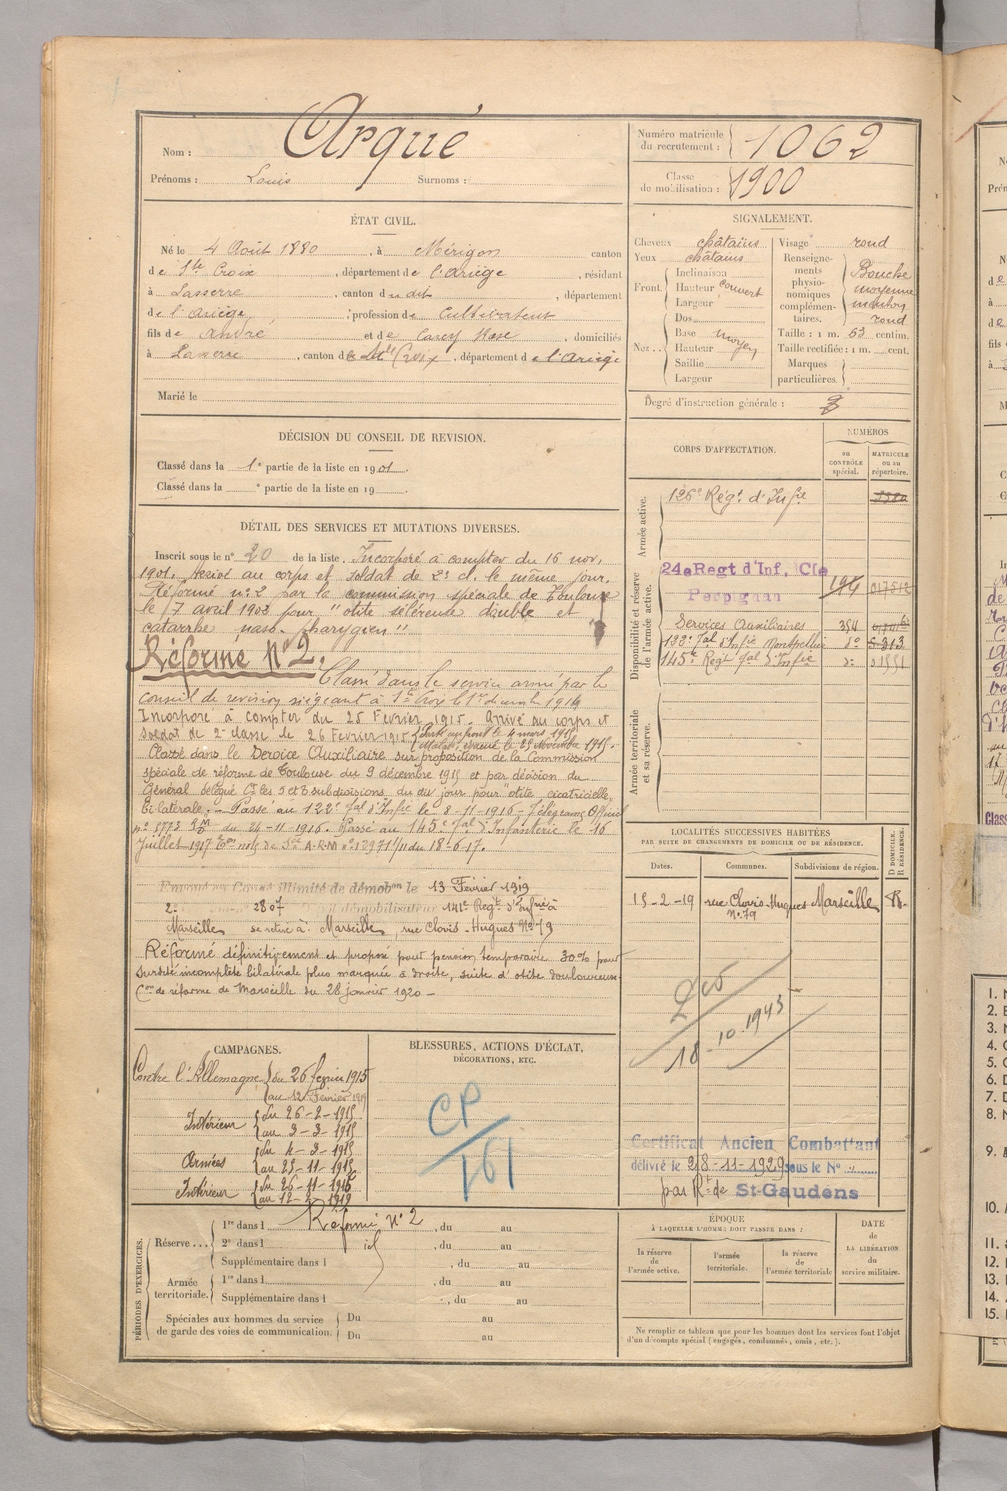 Nom : Arqué
Prénoms : Louis Surnoms :
Numéro matricule du recrutement : 1062
Classe de mobilisation : 1900
ÉTAT CIVIL.
Né le 4 Août 1880, à Mérigon canton
de Ste Croix, département de l'Ariège, résidant
à Lasserre, canton dudit, département
de l'Ariège, profession de Cultivateur
fils de André et de Rose, domiciliés
à Lasserre, canton de Ste Croix, département de l'Ariège
Marié le
SIGNALEMENT.
Cheveux châtains
Yeux châtains
Front. Inclinaison
Hauteur couvert
Largeur
Nez... Dos
Base moyen
Hauteur
Saillie
Largeur
Visage rond
Renseignements physionomiques complémentaires. Bouche moyenne menton rond
Taille : 1 m. 63 centim.
Taille rectifiée : 1 m. cent.
Marques particulières.
Degré d'instruction générale : 3
DÉCISION DU CONSEIL DE REVISION.
Classé dans la 1e partie de la liste en 1901.
Classé dans la e partie de la liste en 19
DÉTAIL DES SERVICES ET MUTATIONS DIVERSES.
Inscrit sous le n° 20 de la liste. Incorporé à compter du 16 nov.
1901. Arrivé au corps et soldat de 2e cl. le même jour.
Réformé n° 2 par la commission spéciale de Toulouse
le 17 avril 1902 pour "otite scléreuse double et
catarrhe naso-pharygien"
Réforme N° 2.
Classé dans le service armé par le
conseil de revision siégeant à Ste Croix le 1er décembre 1914
Incorporé à compter du 25 Février 1915. Arrivé au corps et
soldat de 2e classe le 26 Février 1915 Parti au front le 4 mars 1915
Malade, évacué le 25 Novembre 1915.
Classé dans le Service Auxiliaire sur proposition de la Commission
spéciale de réforme de Toulouse du 9 décembre 1915 et par décision du
Général délégué Ct les 5 et 6 subdivisions, du du jour pour "otite cicatricielle
bilatérale. - Passé au 122e Jal d'Infie le 8-11-1916 - Télégramme Officiel
n° 5773 du 24-11-1916. Passé au 145e Jal d'Infanterie le 16
Juillet 1917 A.R.M n° 12971/11 du 18-6-17.
Envoyé en Congé illimité de démobon le 13 Février 1919
2e 2807 démobilisateur 141e Regt d'Infrie à
Marseille se retire à Marseille, rue Clovis-Hugues N° 79
Réformé définitivement et proposé pour pension temporaire 30% pour
surdité incomplète bilatérale plus marquée à droite, suite d'otite douloureuse
Con de réforme de Marseille du 28 janvier 1920 -
CORPS D'AFFECTATION.
NUMÉROS
au CONTRÔLE spécial.
MATRICULE ou au répertoire.
Armée active.
126e Régt d'Infie
Disponibilité et réserve de l'armée active.
24e Regt d'Inf, Cie
Perpignan
Services Auxiliaires 354
122e Jal d'Infie Montpellier do 5213
145e Regt Jal d'Infie do 01551
Armée territoriale et sa réserve.
LOCALITÉS SUCCESSIVES HABITÉES
PAR SUITE DE CHANGEMENTS DE DOMICILE OU DE RÉSIDENCE.
Dates. Communes. Subdivisions de région. D DOMICILE. R RÉSIDENCE.
15-2-19 rue Clovis Hugues N° 79 Marseille R.
18-10-1943
Certificat Ancien Combattant
délivré le 28-11-1929 sous le N°
par Rt de St-Gaudens
CAMPAGNES.
Contre l'Allemagne du 26 février 1915
au 12 Février 1919
Intérieur du 26-2-1915
au 3-3-1915
Armées du 4-3-1915
au 25-11-1915
Intérieur du 26-11-1915
au 12-2-1919
BLESSURES, ACTIONS D'ÉCLAT,
DÉCORATIONS, ETC.
CP
161
PÉRIODES D'EXERCICES.
Réserve... 1re dans l Réformé N° 2, du au
2e dans l id, du au
Supplémentaire dans l, du au
Armée territoriale. 1re dans l, du au
Supplémentaire dans l, du au
Spéciales aux hommes du service de garde des voies de communication. Du au
Du au
ÉPOQUE
À LAQUELLE L'HOMME DOIT PASSER DANS :
la réserve de l'armée active.
l'armée territoriale.
la réserve de l'armée territoriale
DATE de LA LIBÉRATION du service militaire.
Ne remplir ce tableau que pour les hommes dont les services font l'objet
d'un décompte spécial (engagés, condamnés, omis, etc.).